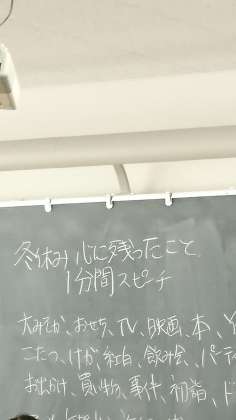 冬休み心に残ったこと
1分間スピーチ
大みそか、おせち、TV、映画、本、Y
こたつ、けが、紅白、飲み会、パーティ
お出かけ、買い物、事件、初詣、ド